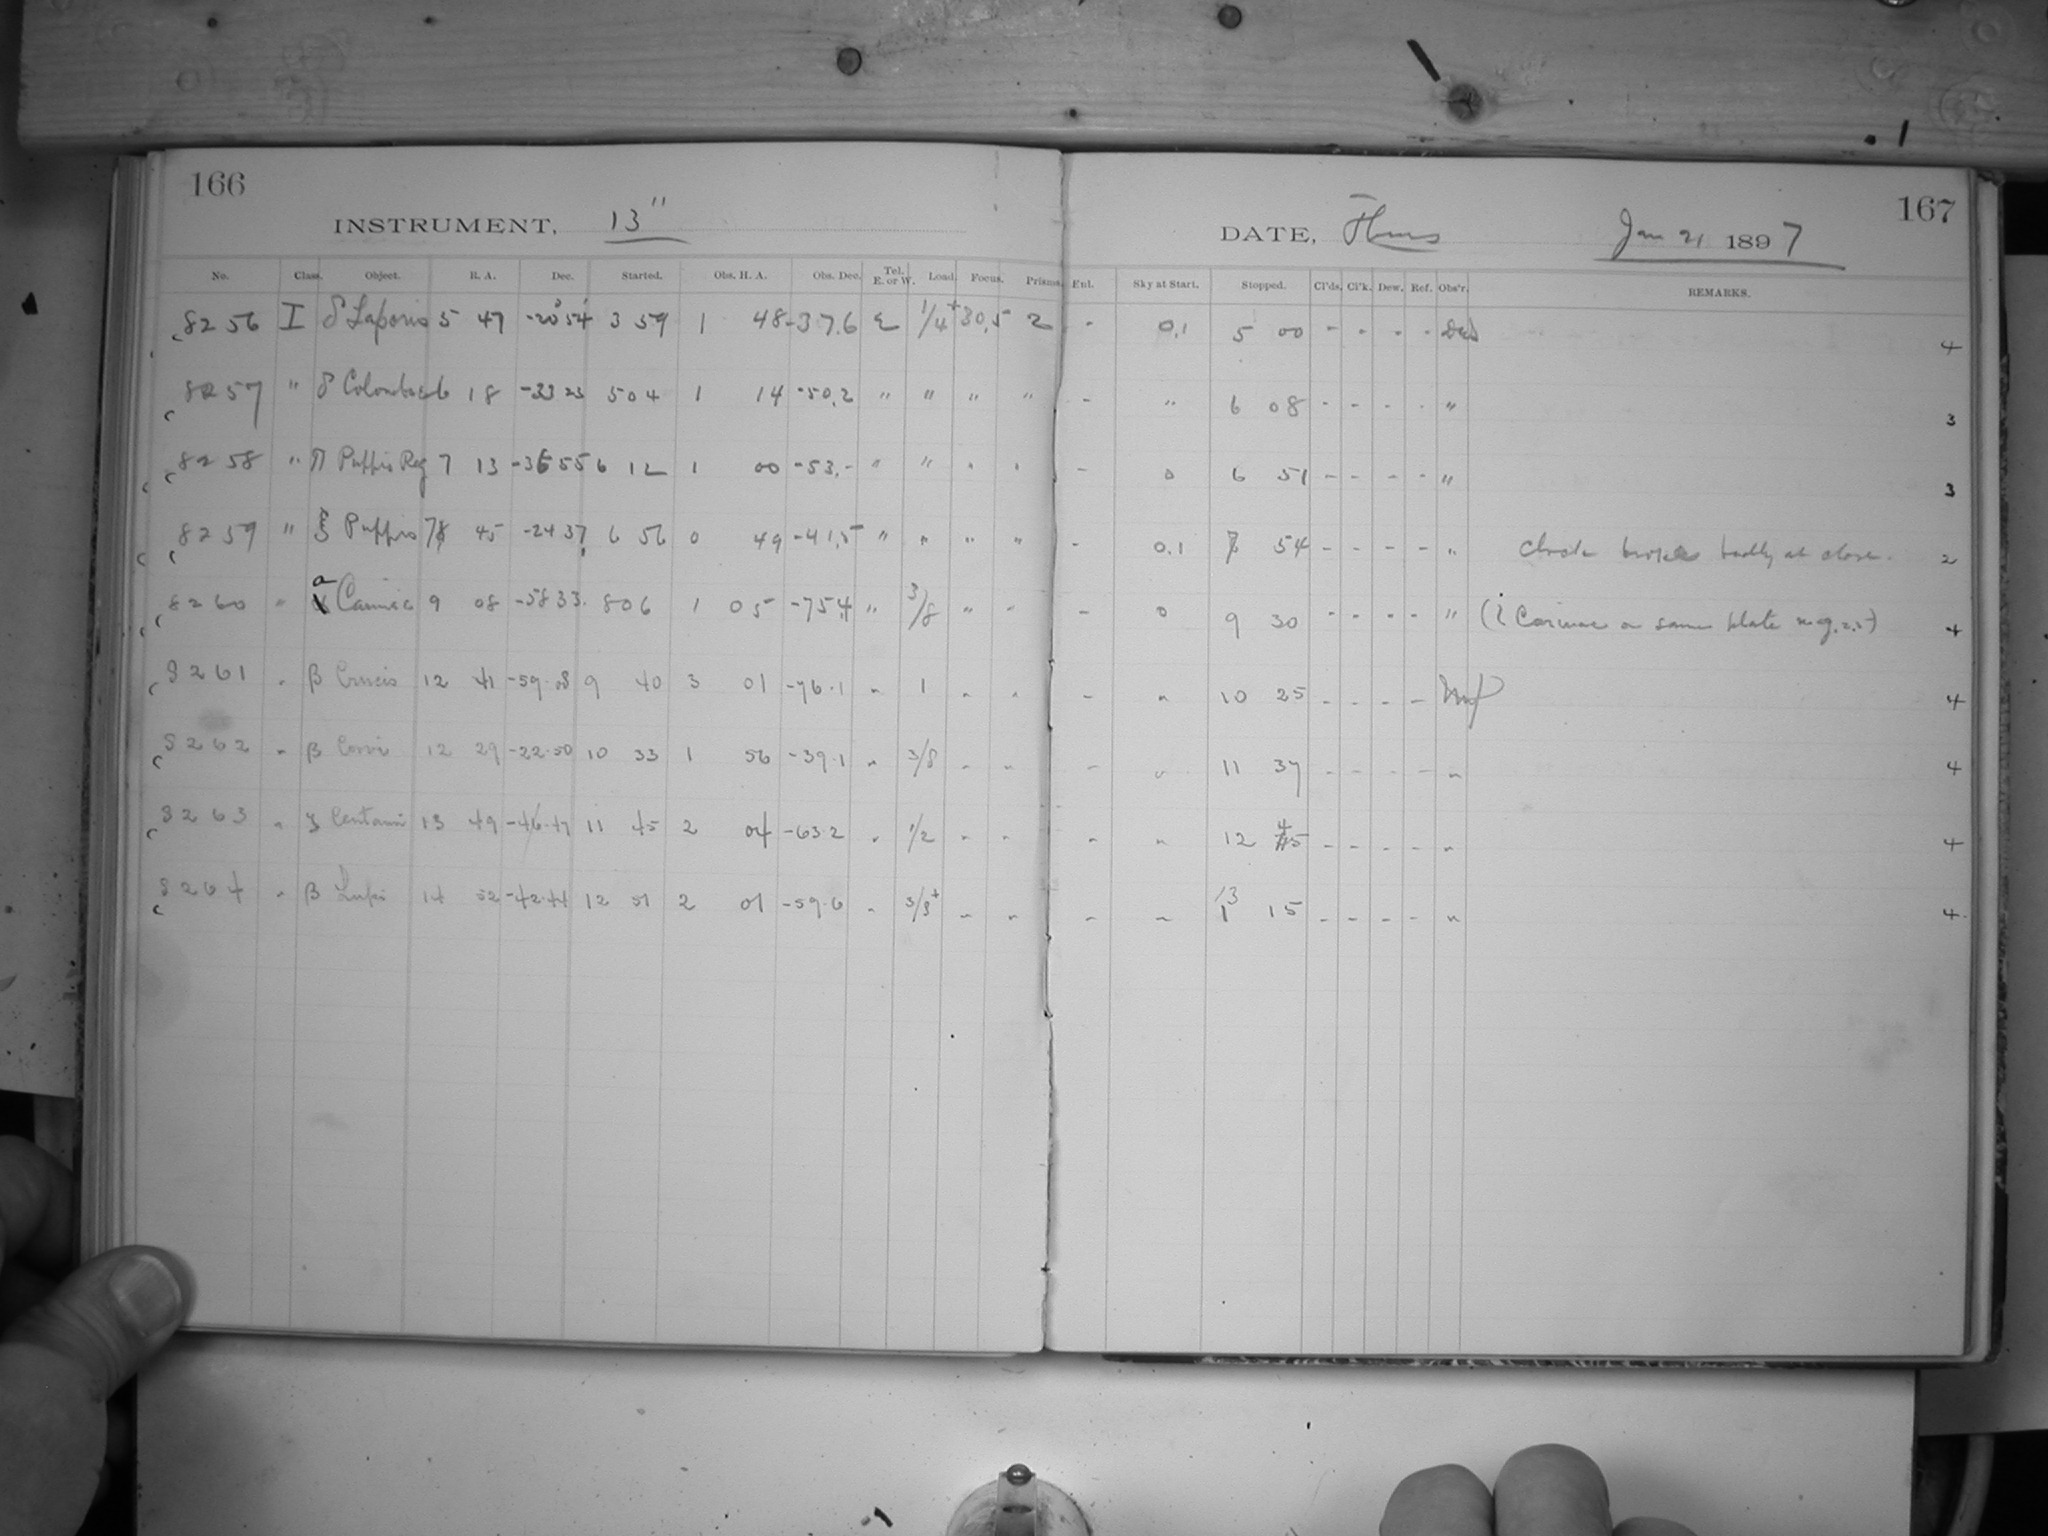 166
INSTRUMENT, 13"
No. Class. Object. R. A. Dec. Started. Obs. H. A. Obs. Dec. Tel. E. or W. Load. Focus. Prisms.
8256 I δ Leporis 5 47 -20° 54' 3 59 1 48 -37.6 E 1/4+ 30.5 2
8257 " δ Columbae 6 18 -33 23 5 04 1 14 -50.2 " " " "
8258 " π Puppis Reg 7 13 -36 55 6 12 1 00 -53.- " " " "
8259 " ξ Puppis 7 45 -24 37 6 56 0 49 -41.5 " " " "
8260 " a Carinae 9 08 -58 33 8 06 1 05 -75.4 " 3/8 " "
8261 " β Crucis 12 41 -59.08 9 40 3 01 -76.1 " 1 " "
8262 " β Corvi 12 29 -22.50 10 33 1 56 -39.1 " 3/8 " "
8263 " ζ Centauri 13 49 -46.47 11 45 2 04 -63.2 " 1/2 " "
8264 " β Lupi 14 52 -42.44 12 51 2 01 -59.6 " 3/8+ " "
167
DATE, Thurs Jan 21 1897
Ent. Sky at Start. Stopped. Cl'ds. Cl'k. Dew. Ref. Obs'r. REMARKS.
- 0.1 5 00 - - - - 4
- " 6 08 - - - - " 3
- 0 6 51 - - - - " 3
- 0.1 7 54 - - - - " clock broke badly at close. 2
- 0 9 30 - - - - " (i Carinae on same plate mg. 2.5) 4
- " 10 25 - - - - 4
- " 11 37 - - - - " 4
- " 12 45 - - - - " 4
- " 13 15 - - - - " 4